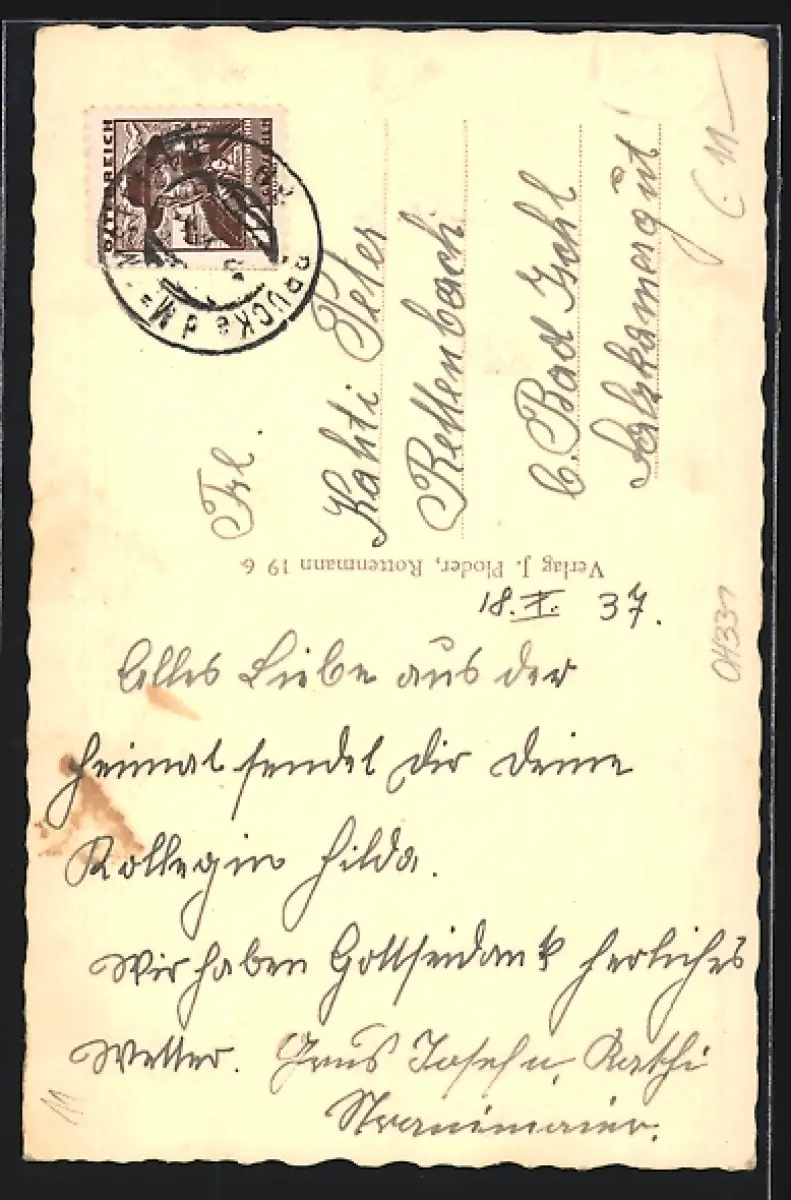 ÖSTERREICH
BRUCK a d M
Frl.
Kahti Peter
Rettenbach
b. Bad Ischl
Salzkamergut
Verlag J. Ploder, Rottenmann 19 6
18. X. 37.
Alles Liebe aus der
Heimat sendet Dir Deine
Kollegin Hilda.
Wir haben Gottseidank herliches
Wetter. Josef u. Kathi
04331